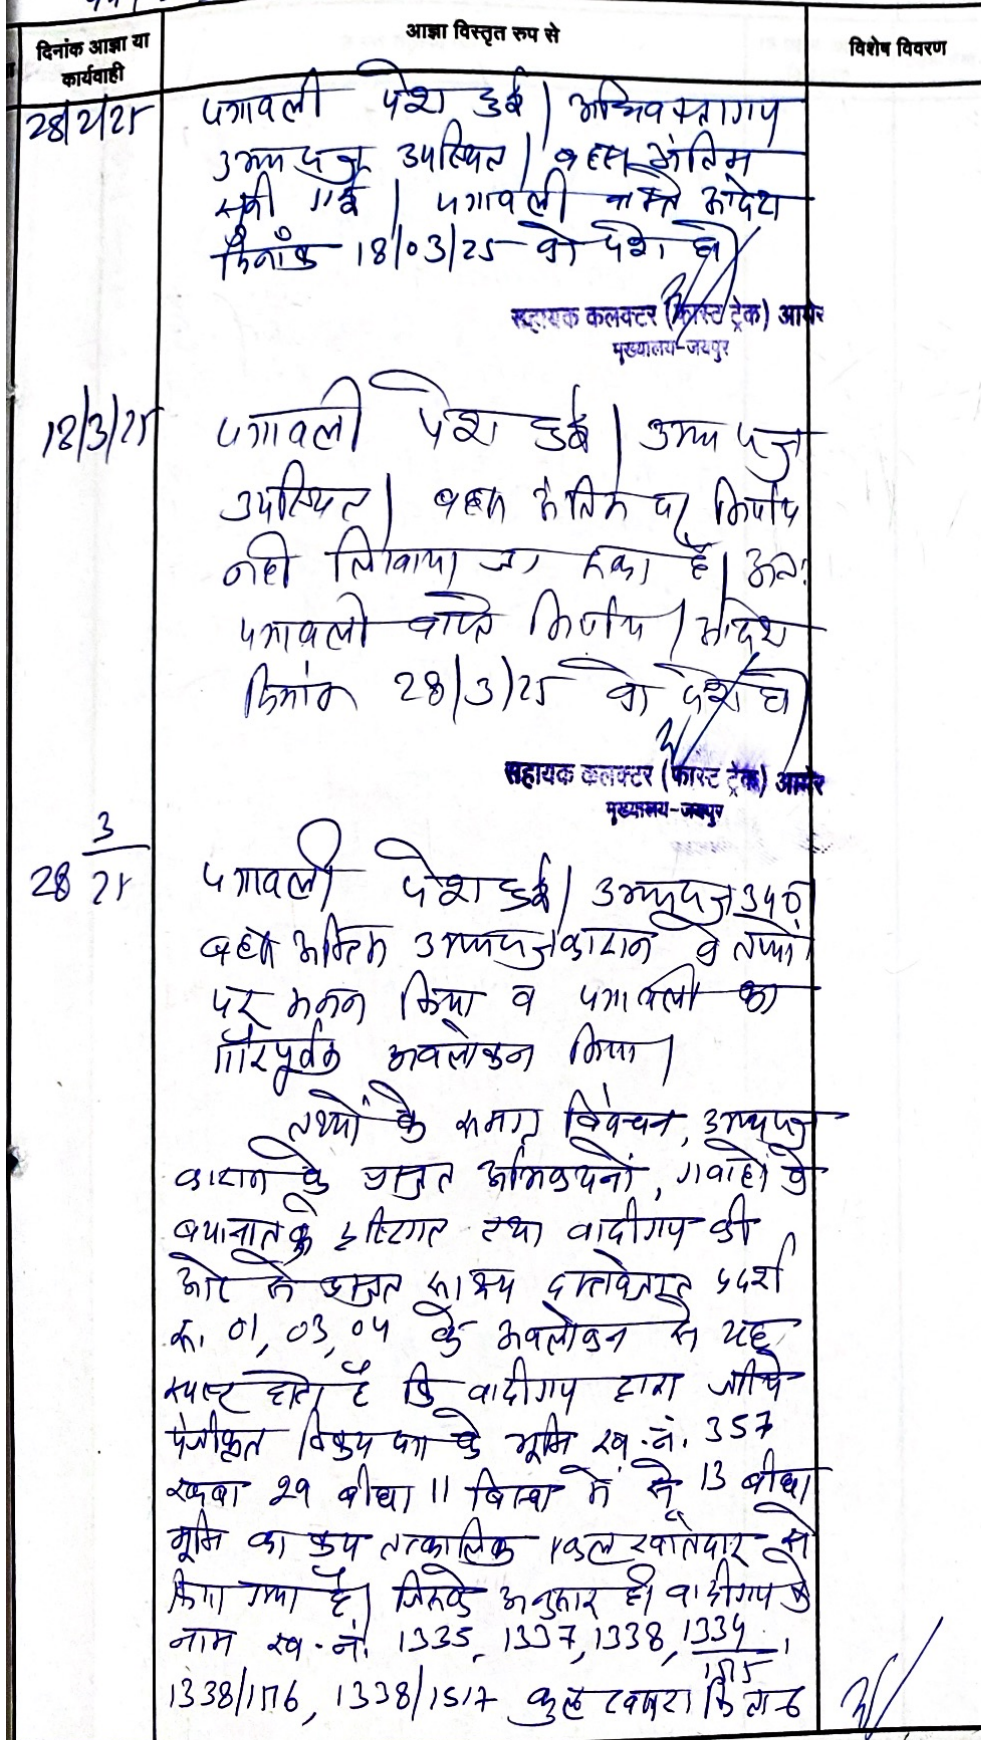 दिनांक आज्ञा या
कार्यवाही
आज्ञा विस्तृत रुप से
विशेष विवरण
28/2/25
पत्रावली पेश हुई। अभिवक्तागण
उभयपक्ष उपस्थित। बहस अंतिम
सुनी गई। पत्रावली वास्ते आदेश
दिनाँक 18/03/25 को पेश हो
सहायक कलक्टर (फास्ट ट्रेक) आमेर
मुख्यालय-जयपुर
18/3/25
पत्रावली पेश हुई। उभयपक्ष
उपस्थित। बहस अंतिम पर निर्णय
नही लिखाया जा सका है। अतः
पत्रावली वास्ते निर्णय/आदेश
दिनांक 28/3/25 को पेश हो
सहायक कलक्टर (फास्ट ट्रेक) आमेर
मुख्यालय-जयपुर
28 3/25
पत्रावली पेश हुई। उभयपक्ष उप०
बहस अन्तिम उभयपक्षकारान व तथ्यों
पर मनन किया व पत्रावली का
गौरपूर्वक अवलोकन किया।
तथ्यों के समग्र विवेचन, उभयपक्ष
कारान के प्रस्तुत अभिकथनों, गवाहों के
बयानात के दृष्टिगत तथा वादीगण की
ओर से प्रस्तुत साक्ष्य दस्तावेजात प्रदर्श
क्र. 01, 03, 04 के अवलोकन से यह
स्पष्ट होता है कि वादीगण द्वारा जरिये
पंजीकृत विक्रय पत्र के भूमि ख.नं. 357
रकबा 29 बीघा 11 बिस्वा में से 13 बीघा
भूमि का क्रय तत्कालिक खातेदार से
किया गया है। जिसके अनुसार ही वादीगण के
नाम ख.नं. 1335, 1337, 1338, 1334/1515,
1338/1516, 1338/1517 कुल खसरा किता 6